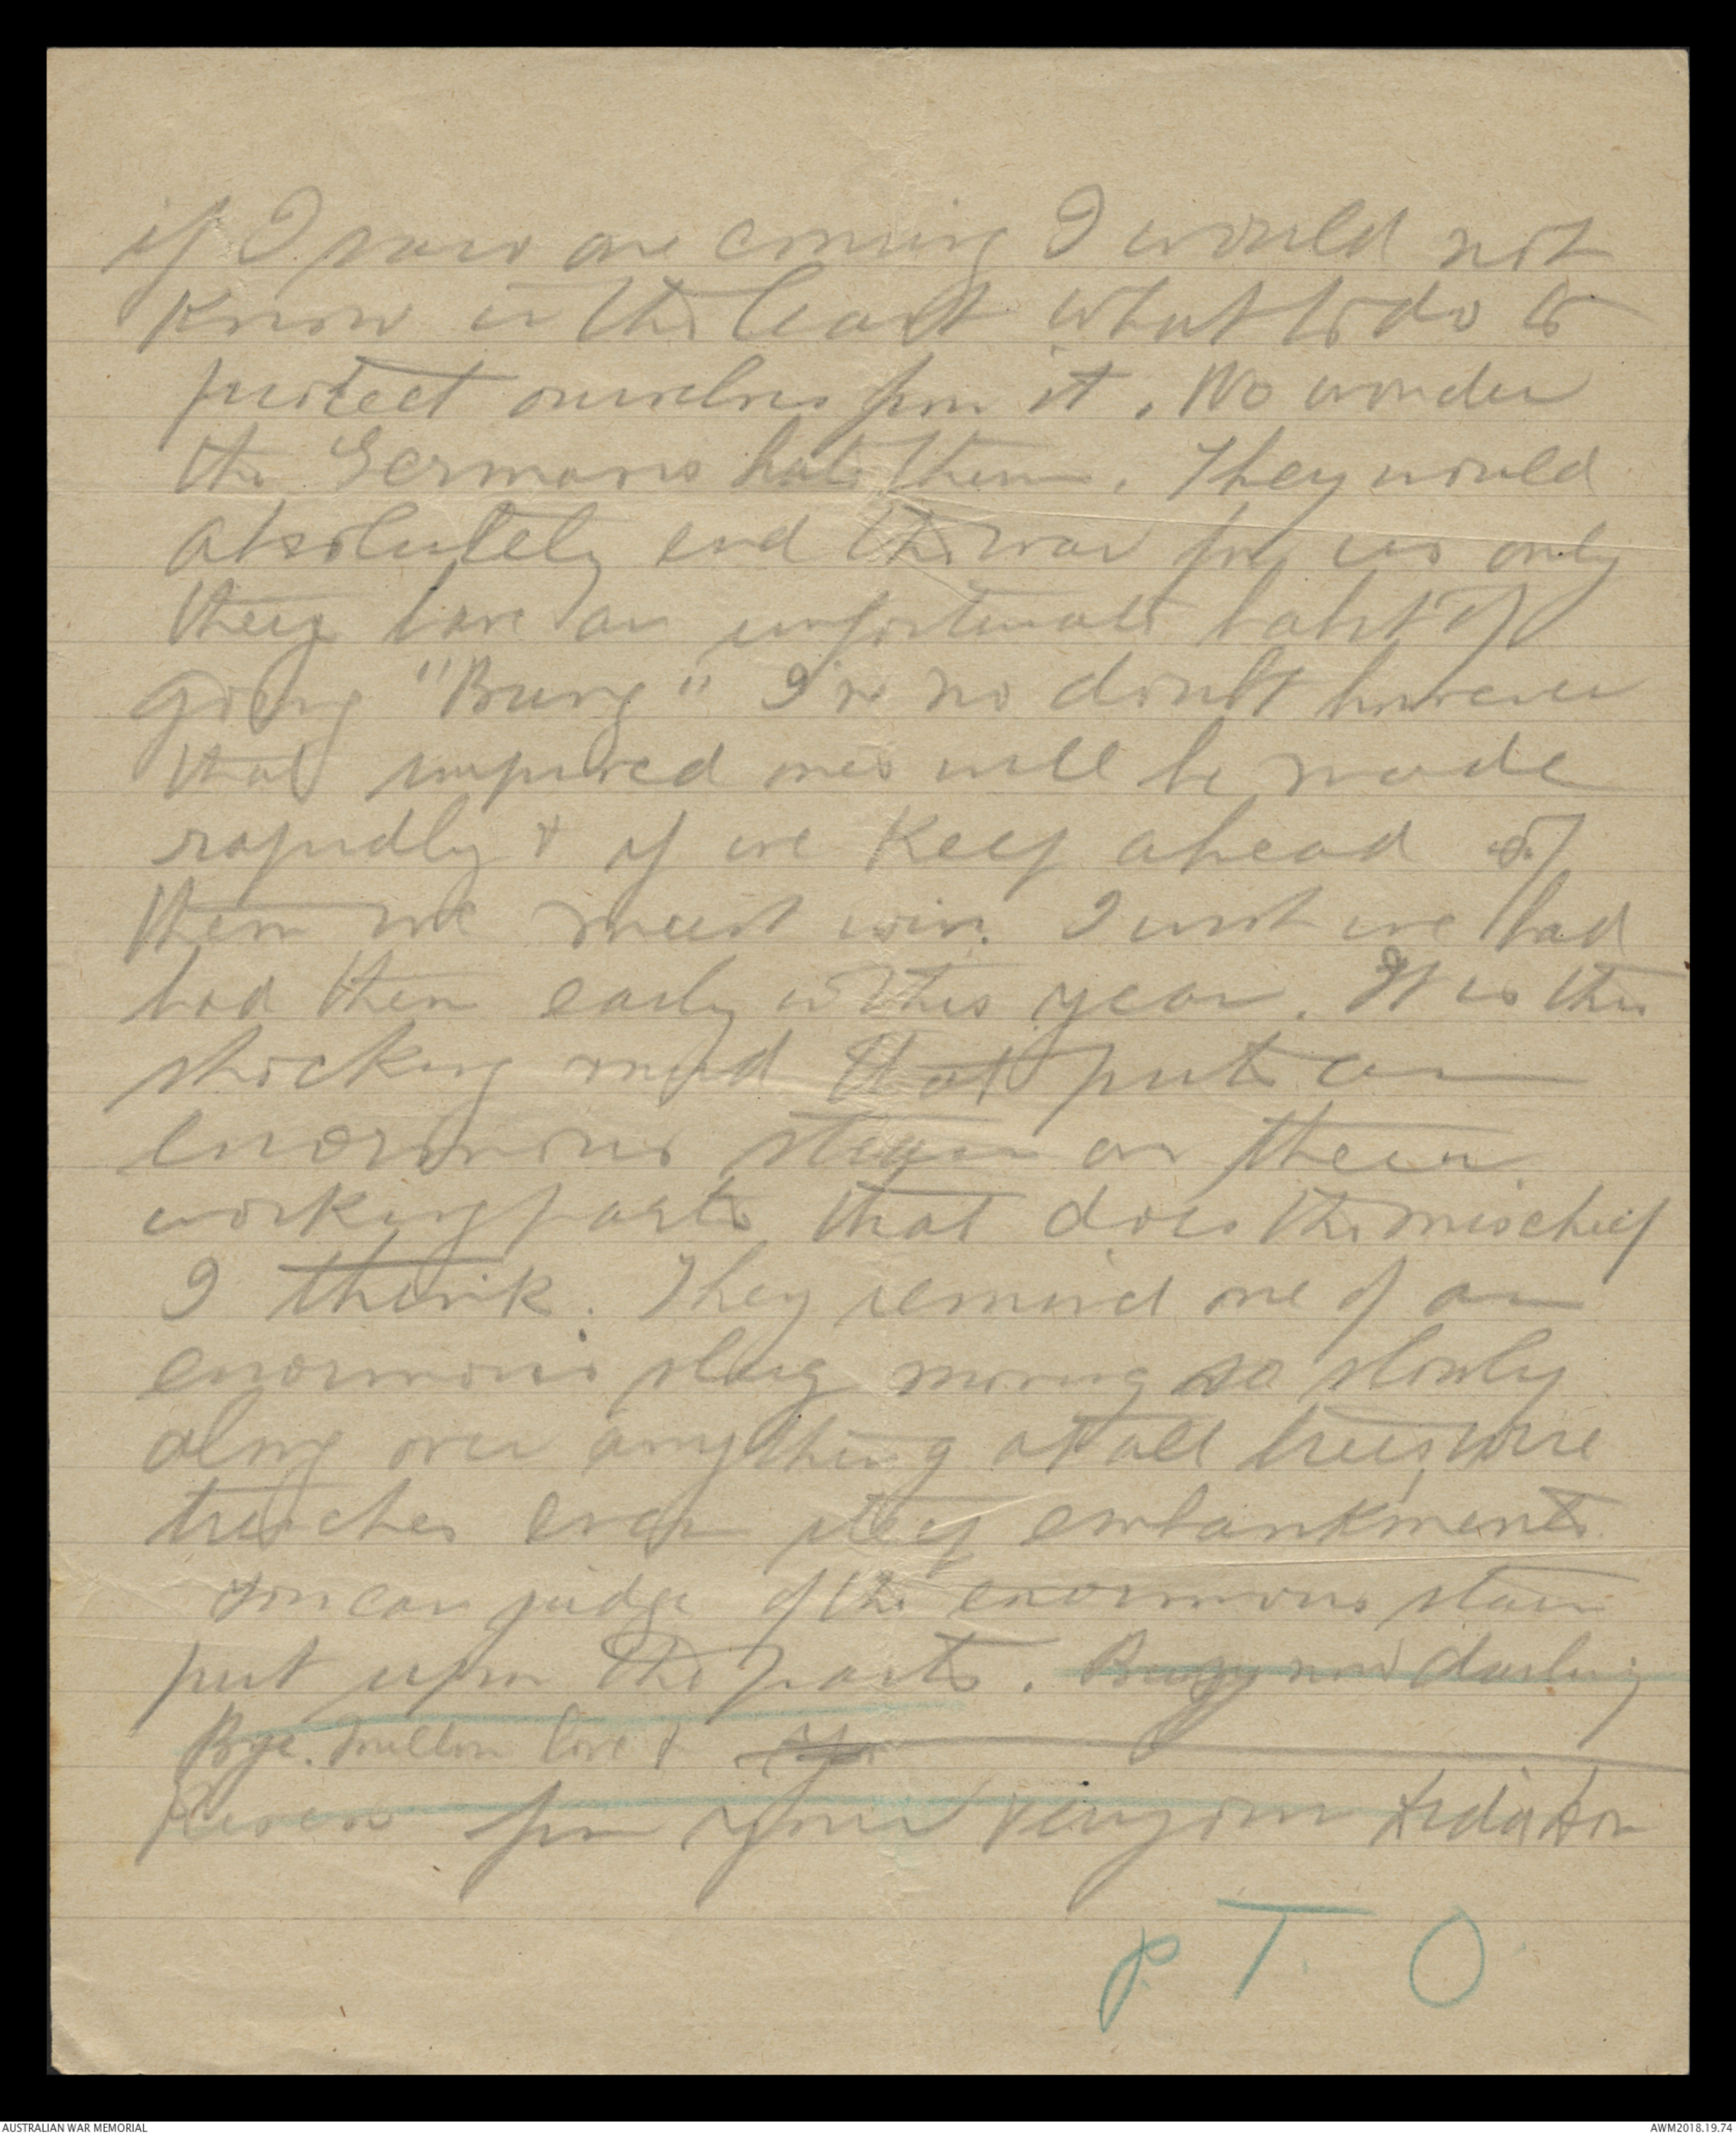 if I saw one coming I would not
know in the least what to do to
protect ourselves from it. No wonder
the Germans hate them. They would
absolutely end the war for us only
they have an unfortunate habit of
going "Bung" I've no doubt however
that improved ones will be made
rapidly & if we keep ahead of
them we must win. I wish we had
had them early in this year. It is this
shocking mud that puts an
enormous strain on their
working parts that does the mischief
I think. They remind one of an
enormous slug moving so slowly
along over anything at all trees, wire
trenches even steep embankments
You can judge of the enormous strain
put upon the parts. now darling
Bye. million love &
kisses from your very own
P. T. O
AUSTRALIAN WAR MEMORIAL
AWM2018.19.74